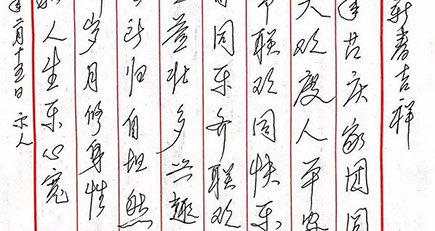 新春吉祥
年共庆家团圆
大欢度人平安
节联欢同快乐
有同乐齐联欢
益壮多兴趣
所归自坦然
岁月修身性
人生乐心宽
年二月十五日